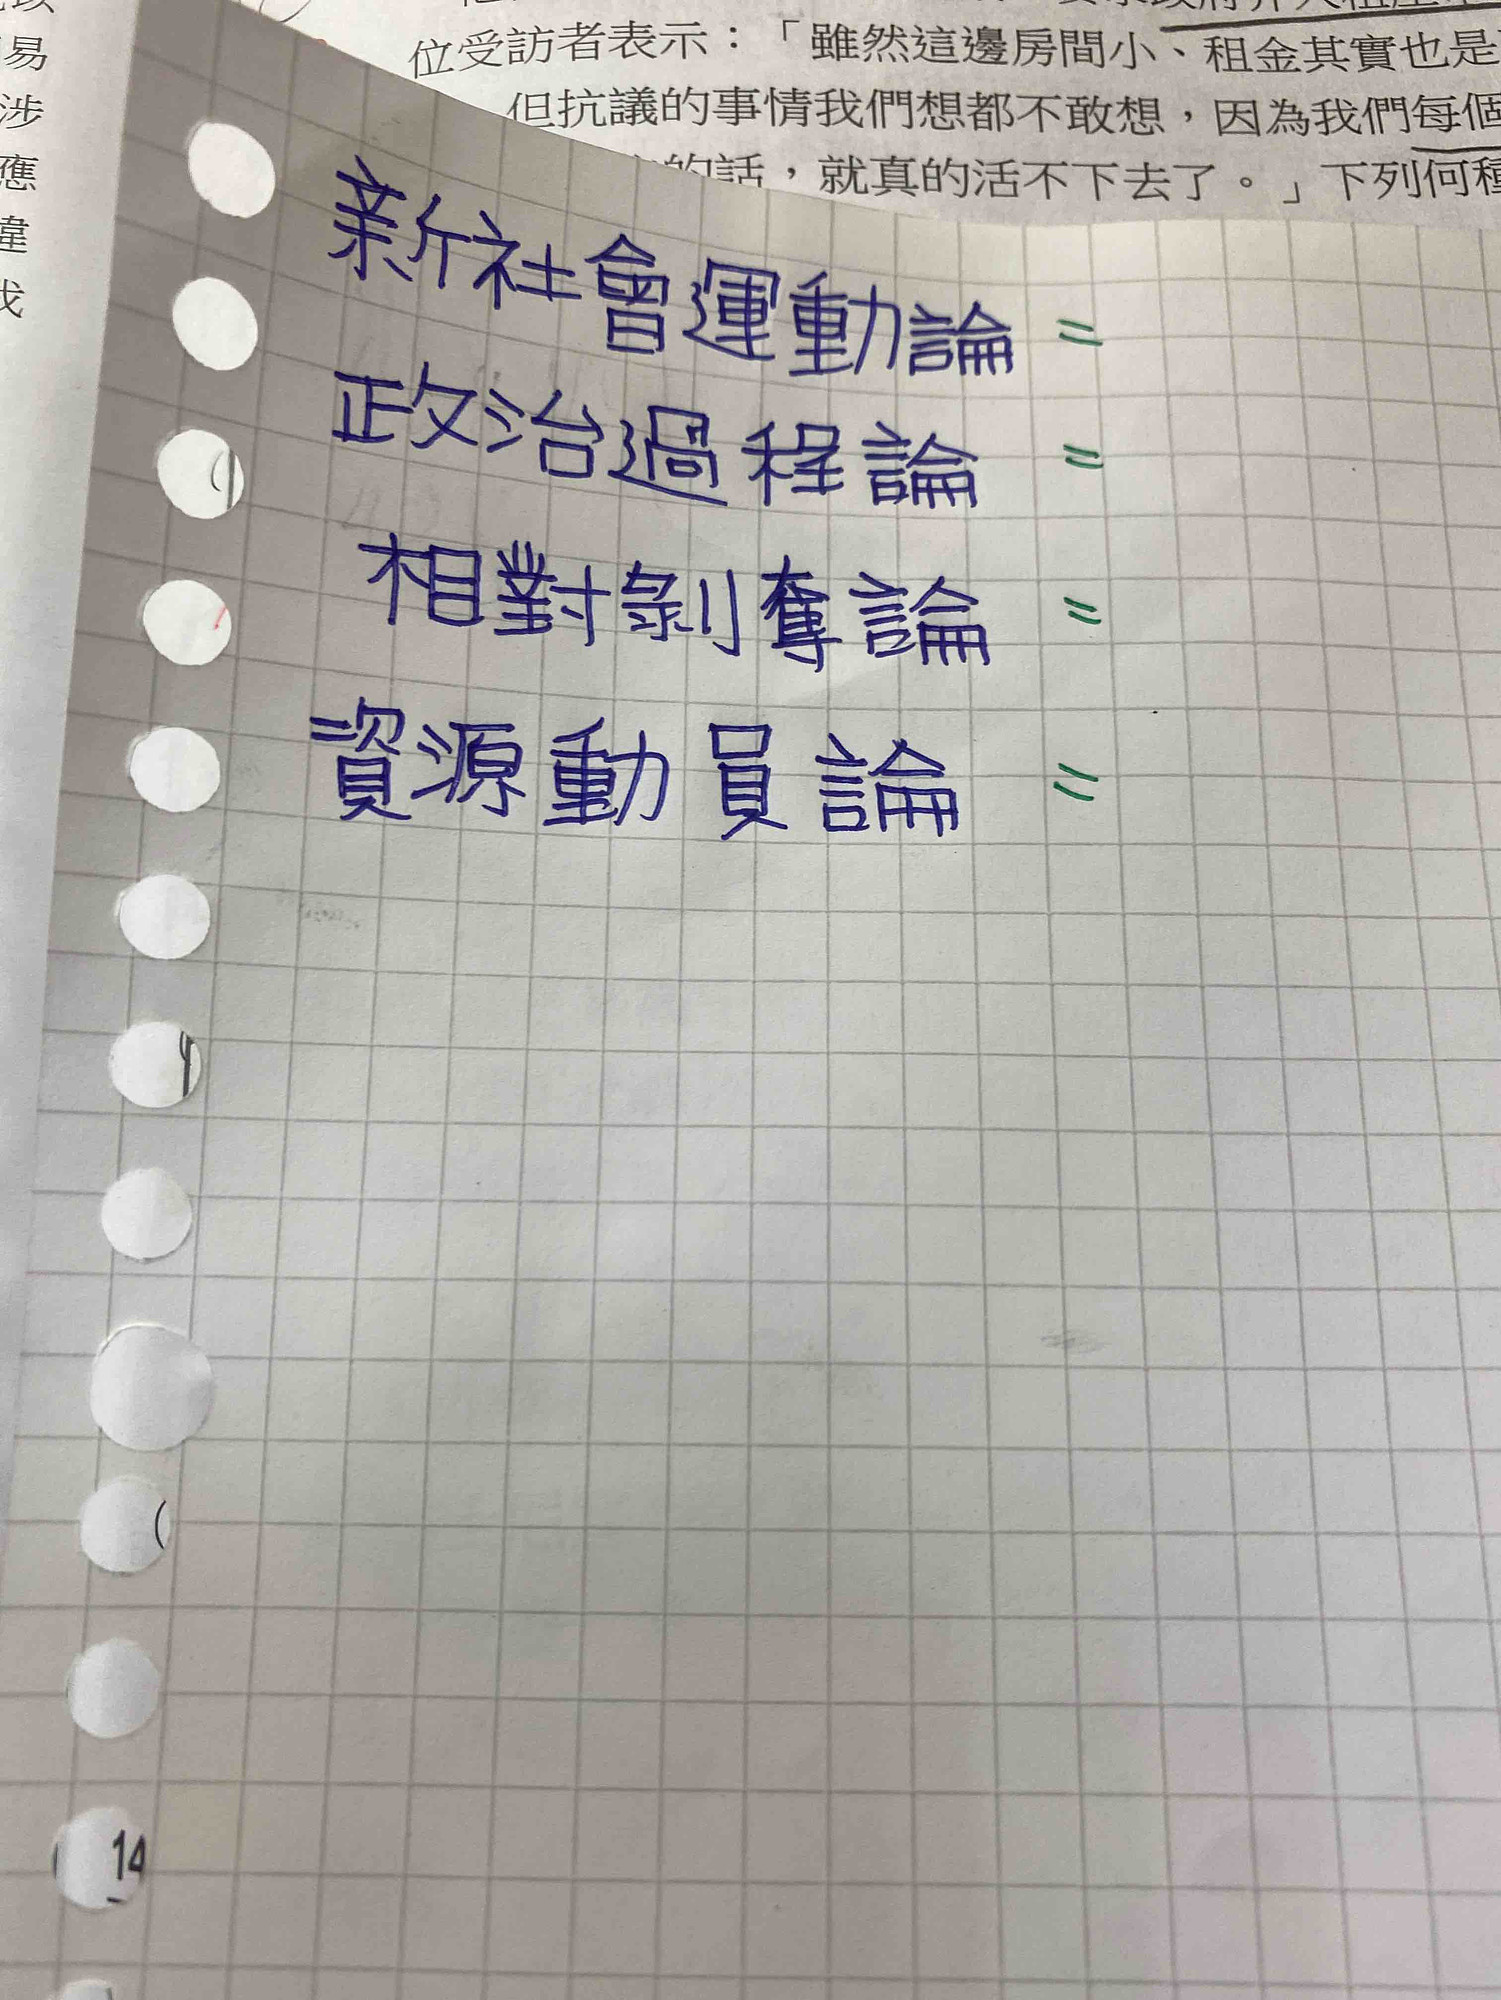 易
涉
應
位受訪者表示：「雖然這邊房間小、租金其實也是
但抗議的事情我們想都不敢想，因為我們每個
的話，就真的活不下去了。」下列何種
新社會運動論 =
政治過程論 =
相對剝奪論 =
資源動員論 =
14